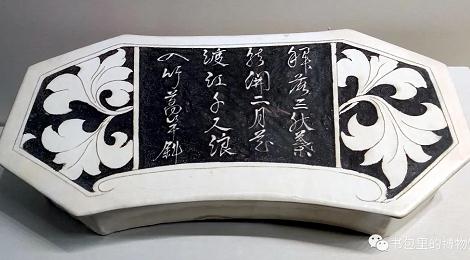 解落三秋葉
能開二月花
渡江千尺浪
入竹萬竿斜
书包里的博物